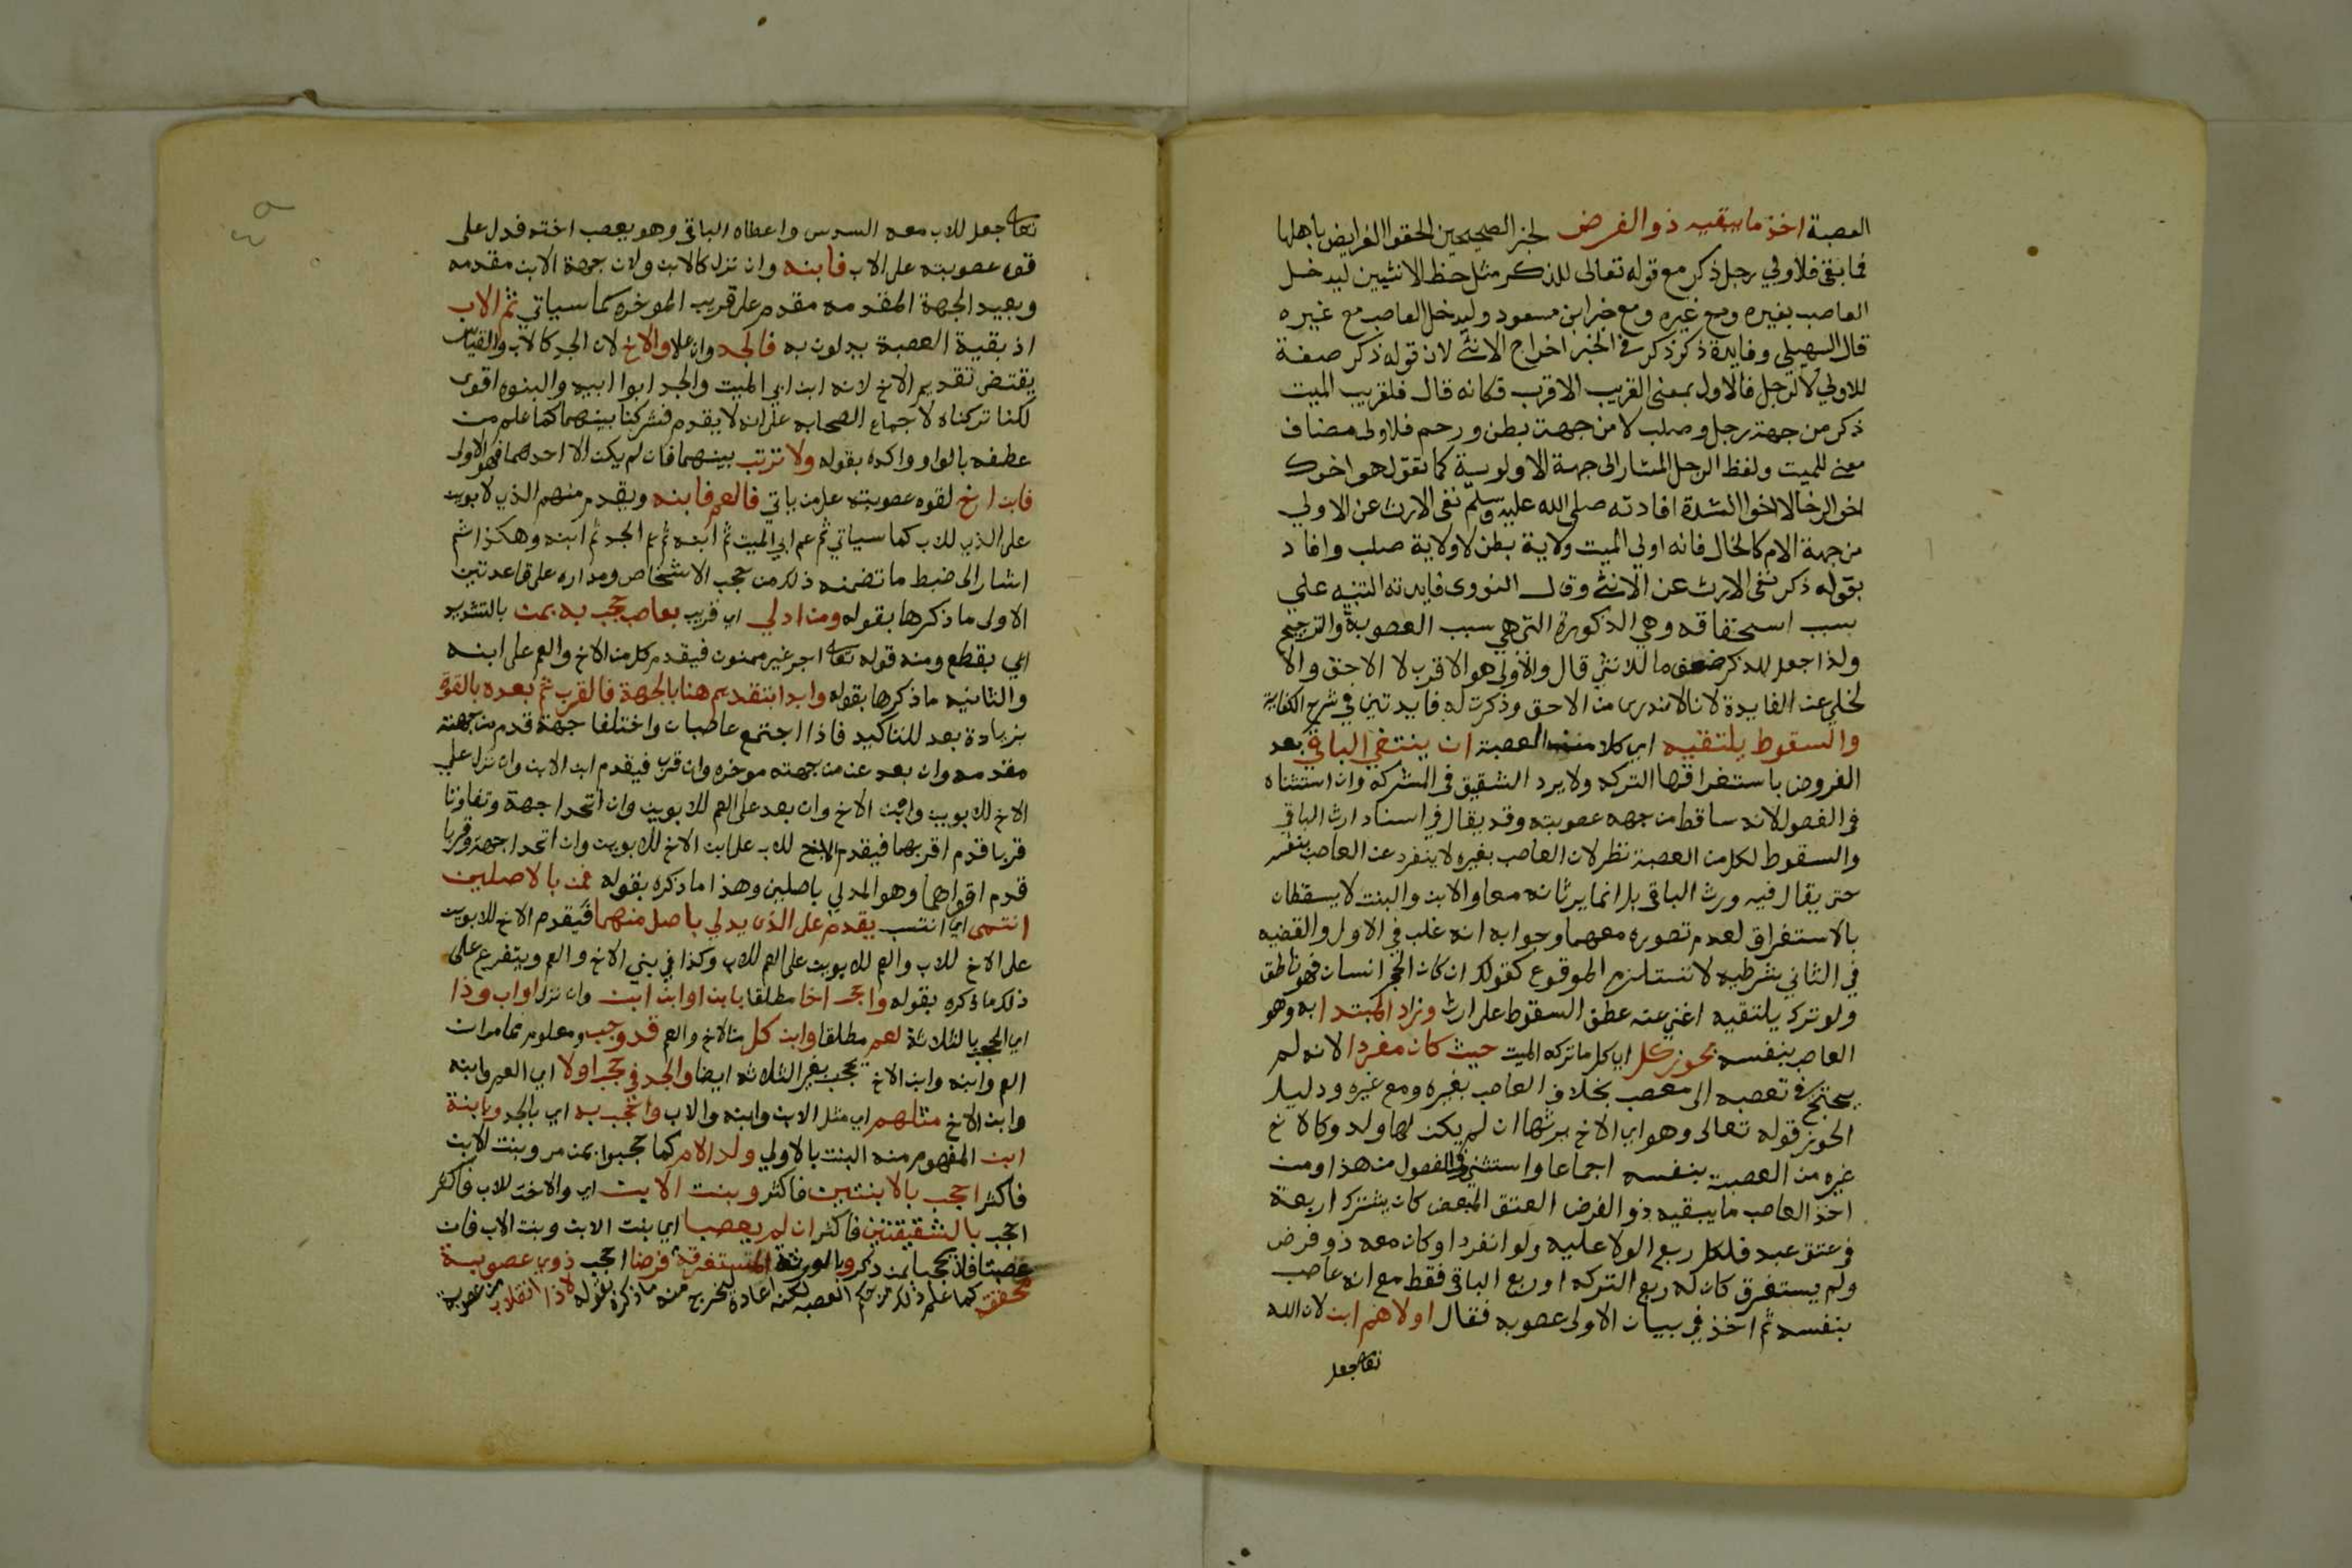 العصبة اخذ ما يبقيه ذو الفرض لخبر الصحيحين الحقوا الفرايض باهلها
فما بقى فلاولي رجل ذكر مع قوله تعالى للذكر مثل حظ الانثيين ليدخل
العاصب بغيره ومع غيره ومع خبر ابن مسعود وليدخل العاصب مع غيره
قال السهيلي وفايدة ذكر ذكر في الخبر اخراج الانثى لان قوله ذكر صفة
للاولي لا لرجل فالاولى بمعنى القريب الاقرب فكانه قال فلقريب الميت
ذكر من جهة رجل وصلب لا من جهة بطن ورحم فلاولى مضاف
معنى للميت ولفظ الرجل المشار الى جهة الاولوية كما تقول هو اخوك
اخو الرخا لا اخو الشدة افادته صلى الله عليه وسلم نفى الارث عن الاولي
من جهة الام كالخال فانه اولي الميت ولاية بطن لا ولاية صلب وافاد
بقوله ذكر نفى الارث عن الانثى وقال النووى فايدته التنبيه على
سبب استحقاقه وهي الذكورة التي هي سبب العصوبة والترجيح
ولذا جعل للذكر ضعف ما للانثى قال والاولى هو الاقرب لا الاحق والا
لخلي عن الفايدة لانا لا ندرى من الاحق وذكرت له فايدتين في شرح الكفاية
والسقوط يلتقيه اي كلا من العصبة ان ينتفي الباقي بعد
الفروض باستغراقها التركه ولا يرد الشقيق في المشركه وان استثناه
في الفصول لانه ساقط من جهه عصوبته وقد يقال في اسناد ارث الباقي
والسقوط لكل من العصبة نظر لان العاصب بغيره لا ينفرد عن العاصب بنفسه
حتى يقال فيه ورث الباقي بل انما يرثانه معا والابن والبنت لا يسقطان
بالاستغراق لعدم تصوره معهما وجوابه انه غلب في الاول والقضيه
في الثاني شرطيه لا تستلزم الوقوع كقولك ان كان الحجر انسان فهو ناطق
ولو ترك يلتقيه اغنى عنه عطف السقوط على ارث ونزاد المبتدا به وهو
العاصب بنفسه بحوز كل اي كل ما تركه الميت حيث كان مفردا لانه لم
يحتج في تعصبه الى معصب بخلاف العاصب بغيره ومع غيره ودليل
الحوز قوله تعالى وهو اي الاخ يرثها ان لم يكن لها ولد وكالاخ
غيره من العصبة بنفسه اجماعا واستثنى في الفصول من هذا ومن
اخذ العاصب ما يبقيه ذو الفرض العتق المبعض كان يشترك اربعة
في عتق عبد فلكل ربع الولا عليه ولو انفردا وكان معه ذو فرض
ولم يستغرق كان له ربع التركه او ربع الباقي فقط مع انه عاصب
بنفسه ثم اخذ في بيان الاولى عصوبه فقال اولاهم ابن لان الله
تعالى جعل
تعالى جعل للاب معه السدس واعطاه الباقي وهو يعصب اخته فدل على
قوة عصوبته على الاب فابنه وان نزل كالابن ولان جهة الابن مقدمه
وبعيد الجهة المقدمه مقدم على قريب الموخره كما سياتي ثم الاب
اذ بقية العصبة يدلون به فالجد وان علا والاخ لان الجد كالاب والقياس
يقتضى تقديم الاخ لانه ابن ابي الميت والجد ابو ابيه والبنوه اقوى
لكنا تركناه لاجماع الصحابه على انه لا يقدم فشركنا بينهما كما علم من
عطفه بالواو واكده بقوله ولا ترتب بينهما فان لم يكن الا احدهما فهو الاولى
فابن اخ لقوه عصوبته على من ياتي فالعم فابنه ويقدم منهم الذي لابوين
على الذي للاب كما سياتي ثم عم ابي الميت ثم ابنه ثم عم الجد ثم ابنه وهكذا ثم
اشار الى ضبط ما تضمنه ذلك من حجب الاشخاص ومداره على قاعدتين
الاولى ما ذكرها بقوله ومن ادلي اي قريب بعاصب حجب به بمن بالتشديد
اي بقطع ومنه قوله تعالى اجر غير ممنون فيقدم كل من الاخ والعم على ابنه
والثانيه ما ذكرها بقوله وابدا بتقديم هنا بالجهة فالقرب ثم بعده بالقوة
بزيادة بعد للتاكيد فاذا اجتمع عاصبان واختلفا جهة قدم من جهته
مقدمه وان بعد عن من جهته موخره وان قرب فيقدم ابن الابن وان نزل على
الاخ للابوين وابن الاخ وان بعد على العم للابوين وان اتحدا جهة وتفاوتا
قربا قدم اقربهما فيقدم الاخ للاب على ابن الاخ للابوين وان اتحدا جهة وقربا
قدم اقواهما وهو المدلي باصلين وهذا ما ذكره بقوله فمن بالاصلين
انتمى اي انتسب يقدم على الذى يدلي باصل منهما فيقدم الاخ للابوين
على الاخ للاب والعم للابوين على العم للاب وكذا في بني الاخ والعم ويتفرع على
ذلك ما ذكره بقوله واحجب اخا مطلقا بابن او ابن ابن وان نزل او اب وذا
اي الحجب بالثلاثة لعم مطلقا وابن كل من الاخ والعم قد وجب ومعلوم مما مر ان
العم وابنه وابن الاخ يحجب بغير الثلاثه ايضا والجد في حجب اولا اي العم وابنه
وابن الاخ مثلهم اي مثل الابن وابنه والاب واحجب به اي بالجد وبابنة
ابن المفهوم منه البنت بالاولي ولد الام كما حجبوا بمن مر وبنت الابن
فاكثر احجب بالابنتين فاكثر وبنت الابن اي والاخت للاب فاكثر
احجب بالشقيقتين فاكثر ان لم يعصبا اي بنت الابن وبنت الاب فان
عصبتا فلا تحجبا بمن ذكر وبالورثة المستغرقة فرضا احجب ذوي عصوبة
محققه كما علم ذلك من حكم العصبه لكنه اعاده ليخرج منه ما ذكره بقوله لا ذا انقلاب من عصوبة